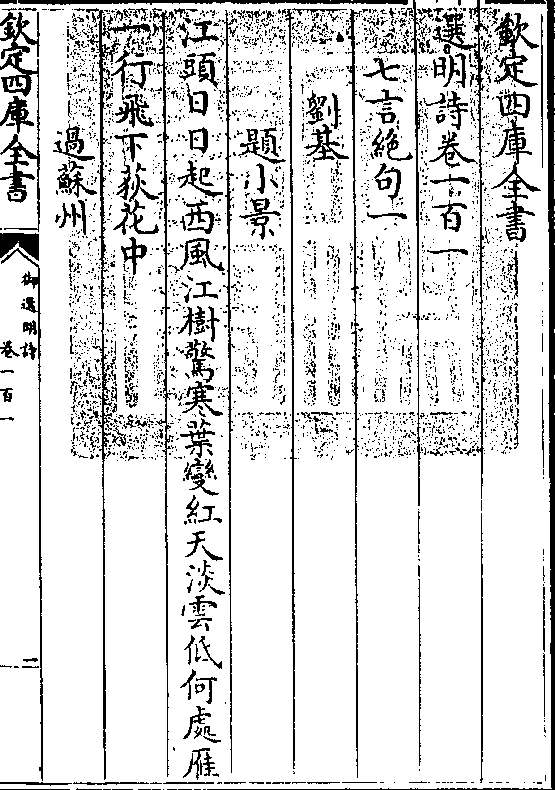 欽定四庫全書
選明詩卷一百一
七言絶句一
劉基
題小景
江頭日日起西風江樹驚寒葉變紅天淡雲低何處雁
一行飛下荻花中
過蘇州
欽定四庫全書
御選明詩
卷一百一
二